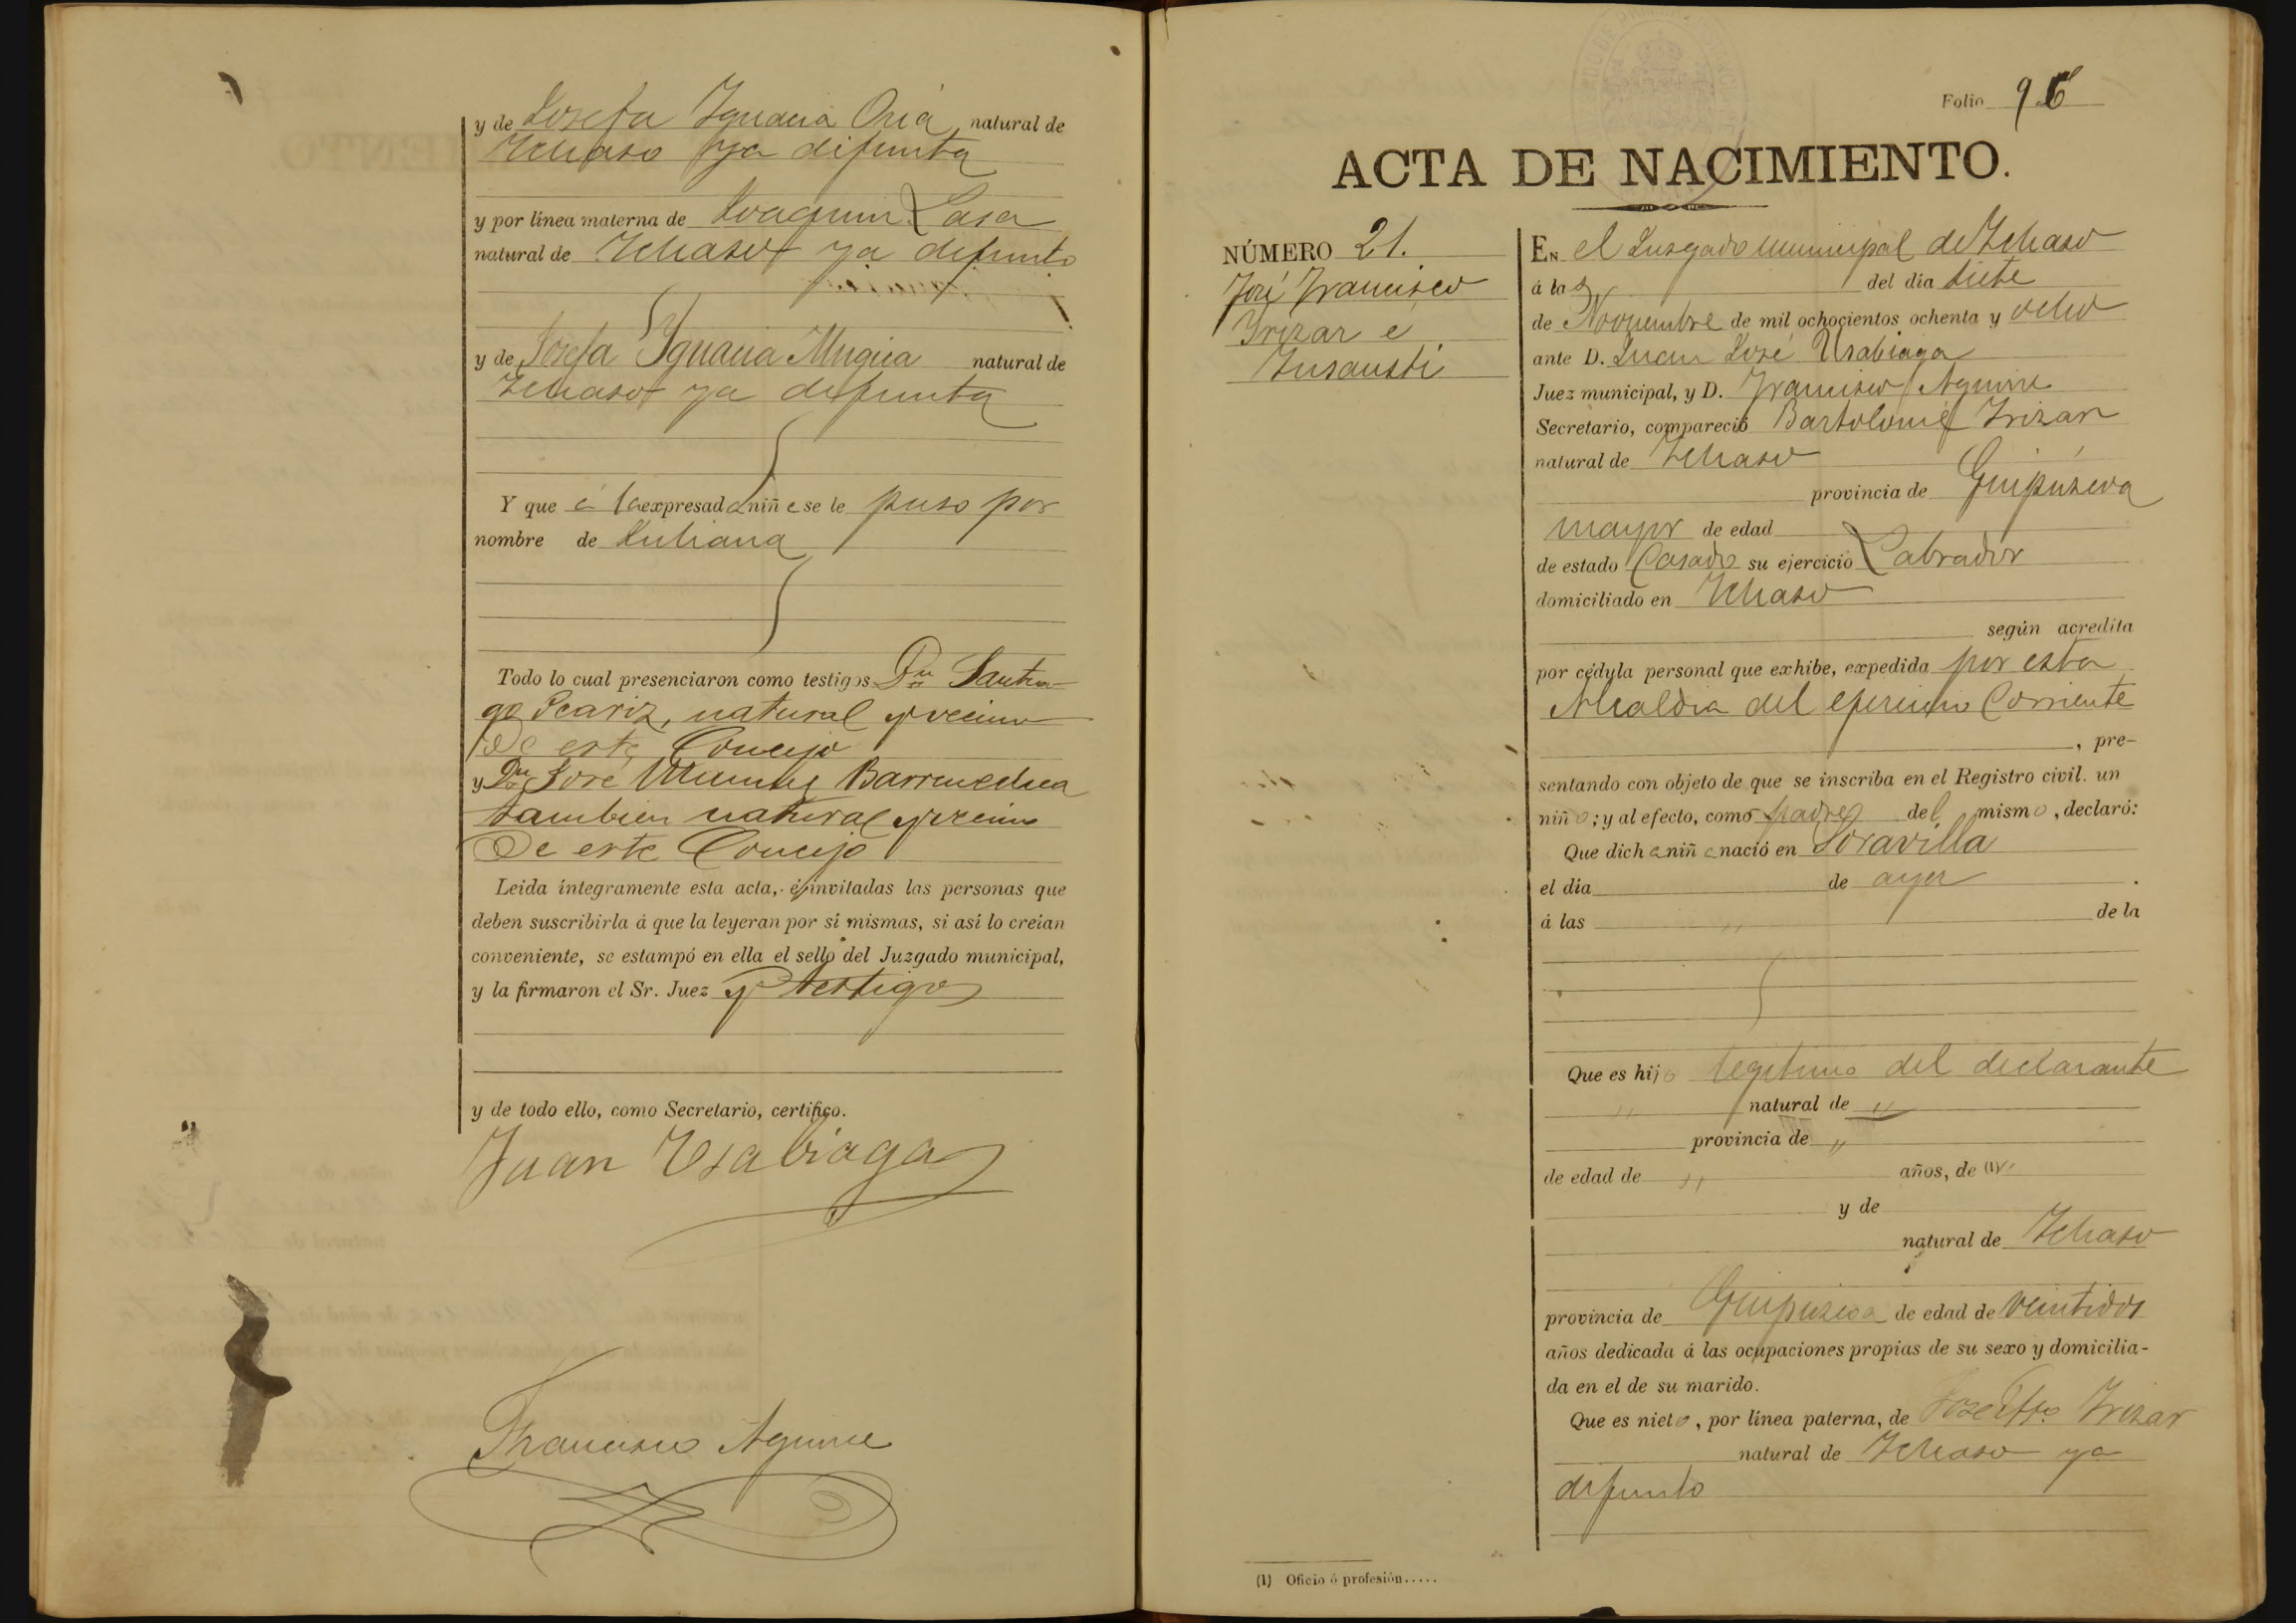 y de Josefa Ignacia Oria natural de
Ichaso ya difunta
y por línea materna de Joaquin Lasa
natural de Ichaso ya difunto
y de Josefa Ignacia Mugica natural de
Ichaso ya difunta
Y que á la expresada niña se le puso por
nombre de Juliana
Todo lo cual presenciaron como testigos Dn Santia
go Icariz, natural y vecino
de este Concejo
y Dn José Barrenechea
tambien natural y vecino
De este Concejo
Leida íntegramente esta acta, é invitadas las personas que
deben suscribirla á que la leyeran por sí mismas, si así lo creían
conveniente, se estampó en ella el sello del Juzgado municipal,
y la firmaron el Sr. Juez y testigos
y de todo ello, como Secretario, certifico.
Juan Usabiaga
Francisco Aguirre
Folio 96
ACTA DE NACIMIENTO.
NÚMERO 21.
José Francisco
Irizar é
Insausti
EN el Jusgado municipal de Ichaso
á las del día siete
de Noviembre de mil ochocientos ochenta y ocho
ante D. Juan José Usabiaga
Juez municipal, y D. Francisco Aguirre
Secretario, compareció Bartolomé Irizar
natural de Ichaso
provincia de Guipúzcoa
mayor de edad
de estado Casado su ejercicio Labrador
domiciliado en Ichaso
según acredita
por cédula personal que exhibe, expedida por esta
Alcaldia del ejercicio Corriente
, pre-
sentando con objeto de que se inscriba en el Registro civil. un
niño; y al efecto, como padre del mismo, declaró:
Que dicho niño nació en Soravilla
el día de ayer
á las " de la
Que es hijo legitimo del declarante
" natural de "
provincia de "
de edad de " años, de (1) "
y de
natural de Ichaso
provincia de Guipuzcoa de edad de veintidos
años dedicada á las ocupaciones propias de su sexo y domicilia-
da en el de su marido.
Que es nieto, por línea paterna, de José Irizar
natural de Ichaso ya
difunto
(1) Oficio ó profesión.....